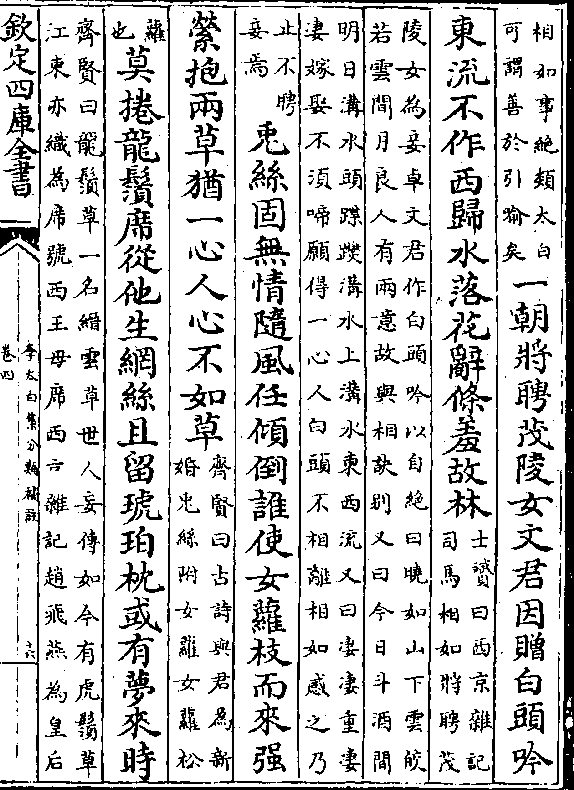 相如事絶類太白
可謂善於引喻矣
一朝將聘茂陵女文君因贈白頭吟
東流不作西歸水落花辭條羞故林
士贇曰西京雜記
司馬相如將聘茂
陵女為妾卓文君作白頭吟以自絶曰皚如山下雲皎
若雲間月良人有兩意故與相訣别又曰今日斗酒間
明日溝水頭蹀躞溝水上溝水東西流又曰凄凄重凄
凄嫁娶不須啼願得一心人白頭不相離相如感之乃
止不聘
妾焉
兎絲固無情隨風任傾倒誰使女蘿枝而來强
縈抱兩草猶一心人心不如草
齊賢曰古詩與君為新
婚兎絲附女蘿女蘿松
蘿
也
莫捲龍鬚席從他生網絲且留琥珀枕或有夢來時
齊賢曰龍鬚草一名縉雲草世人妄傳如今有虎鬚草
江東亦織為席號西王母席西京雜記趙飛燕為皇后
欽定四庫全書
李太白集分類補註
卷四
六